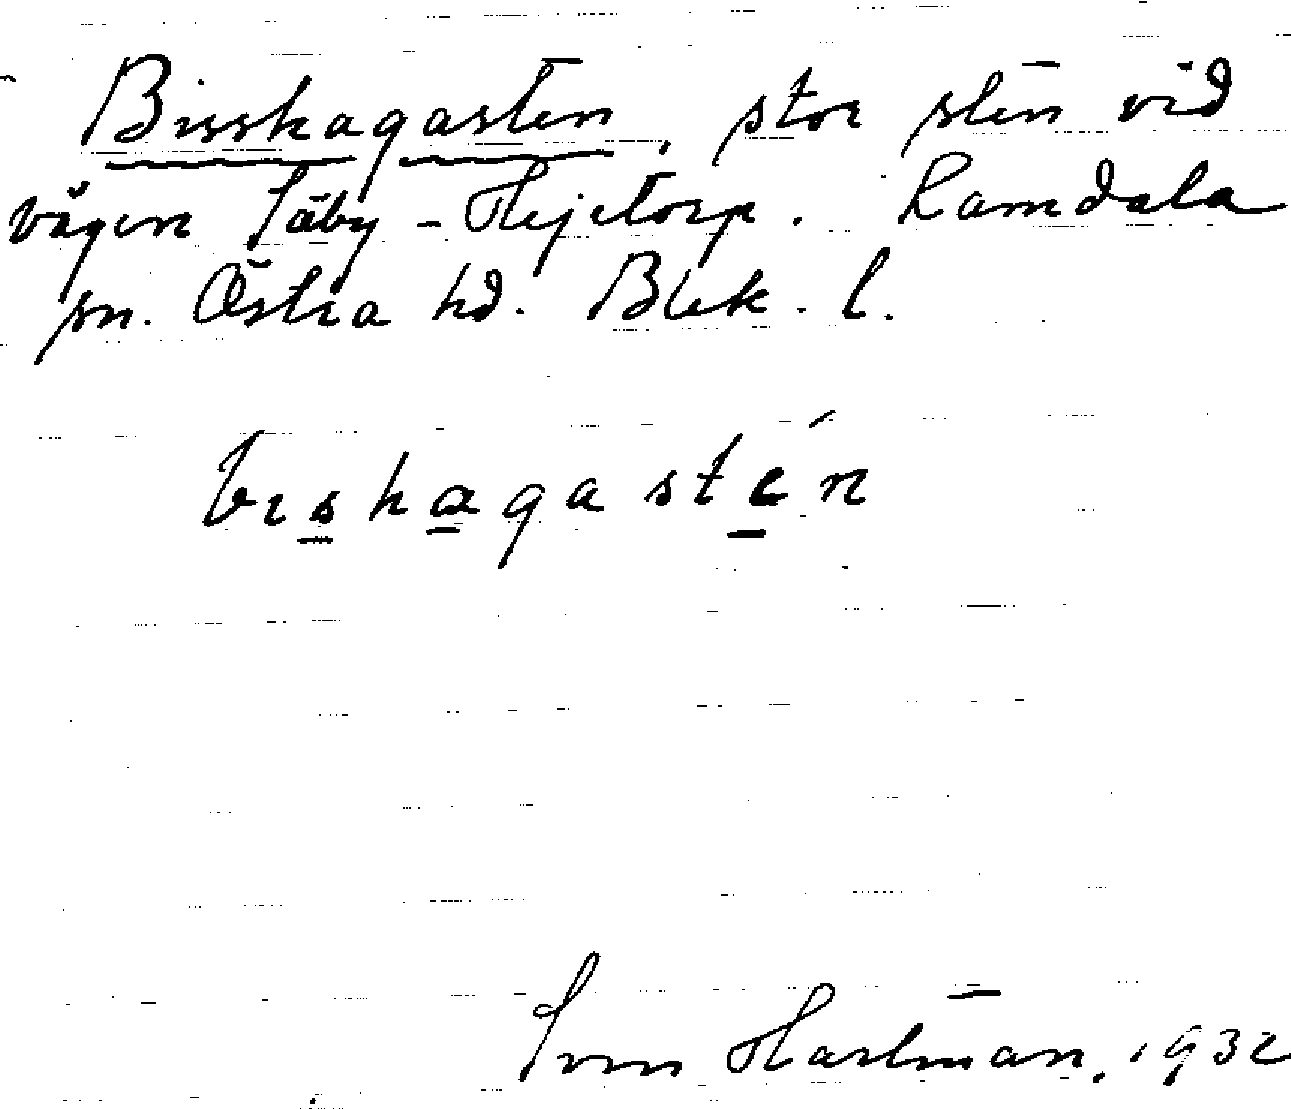 Bisskagasten, stor sten vid
vägen Säby - Hejetorp. Ramdala
sn. Östra hd. Blek. l.
biskagastén
Sven Hartman, 1932